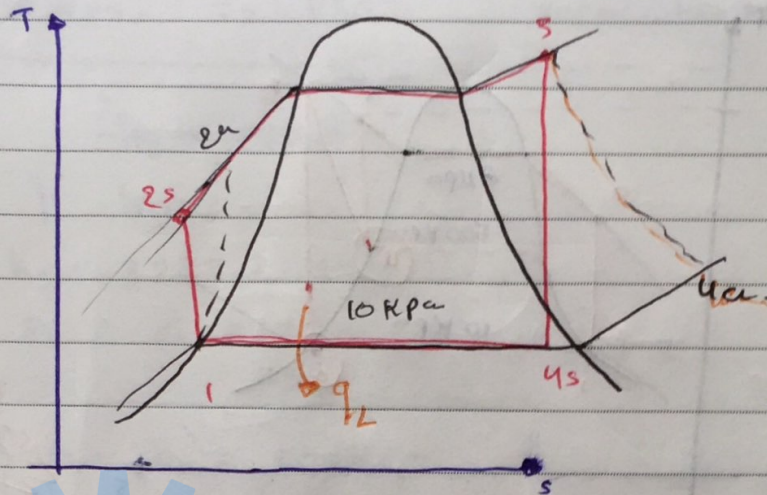 T
3
2a
2s
10 Kpa
4a
1
4s
qL
s